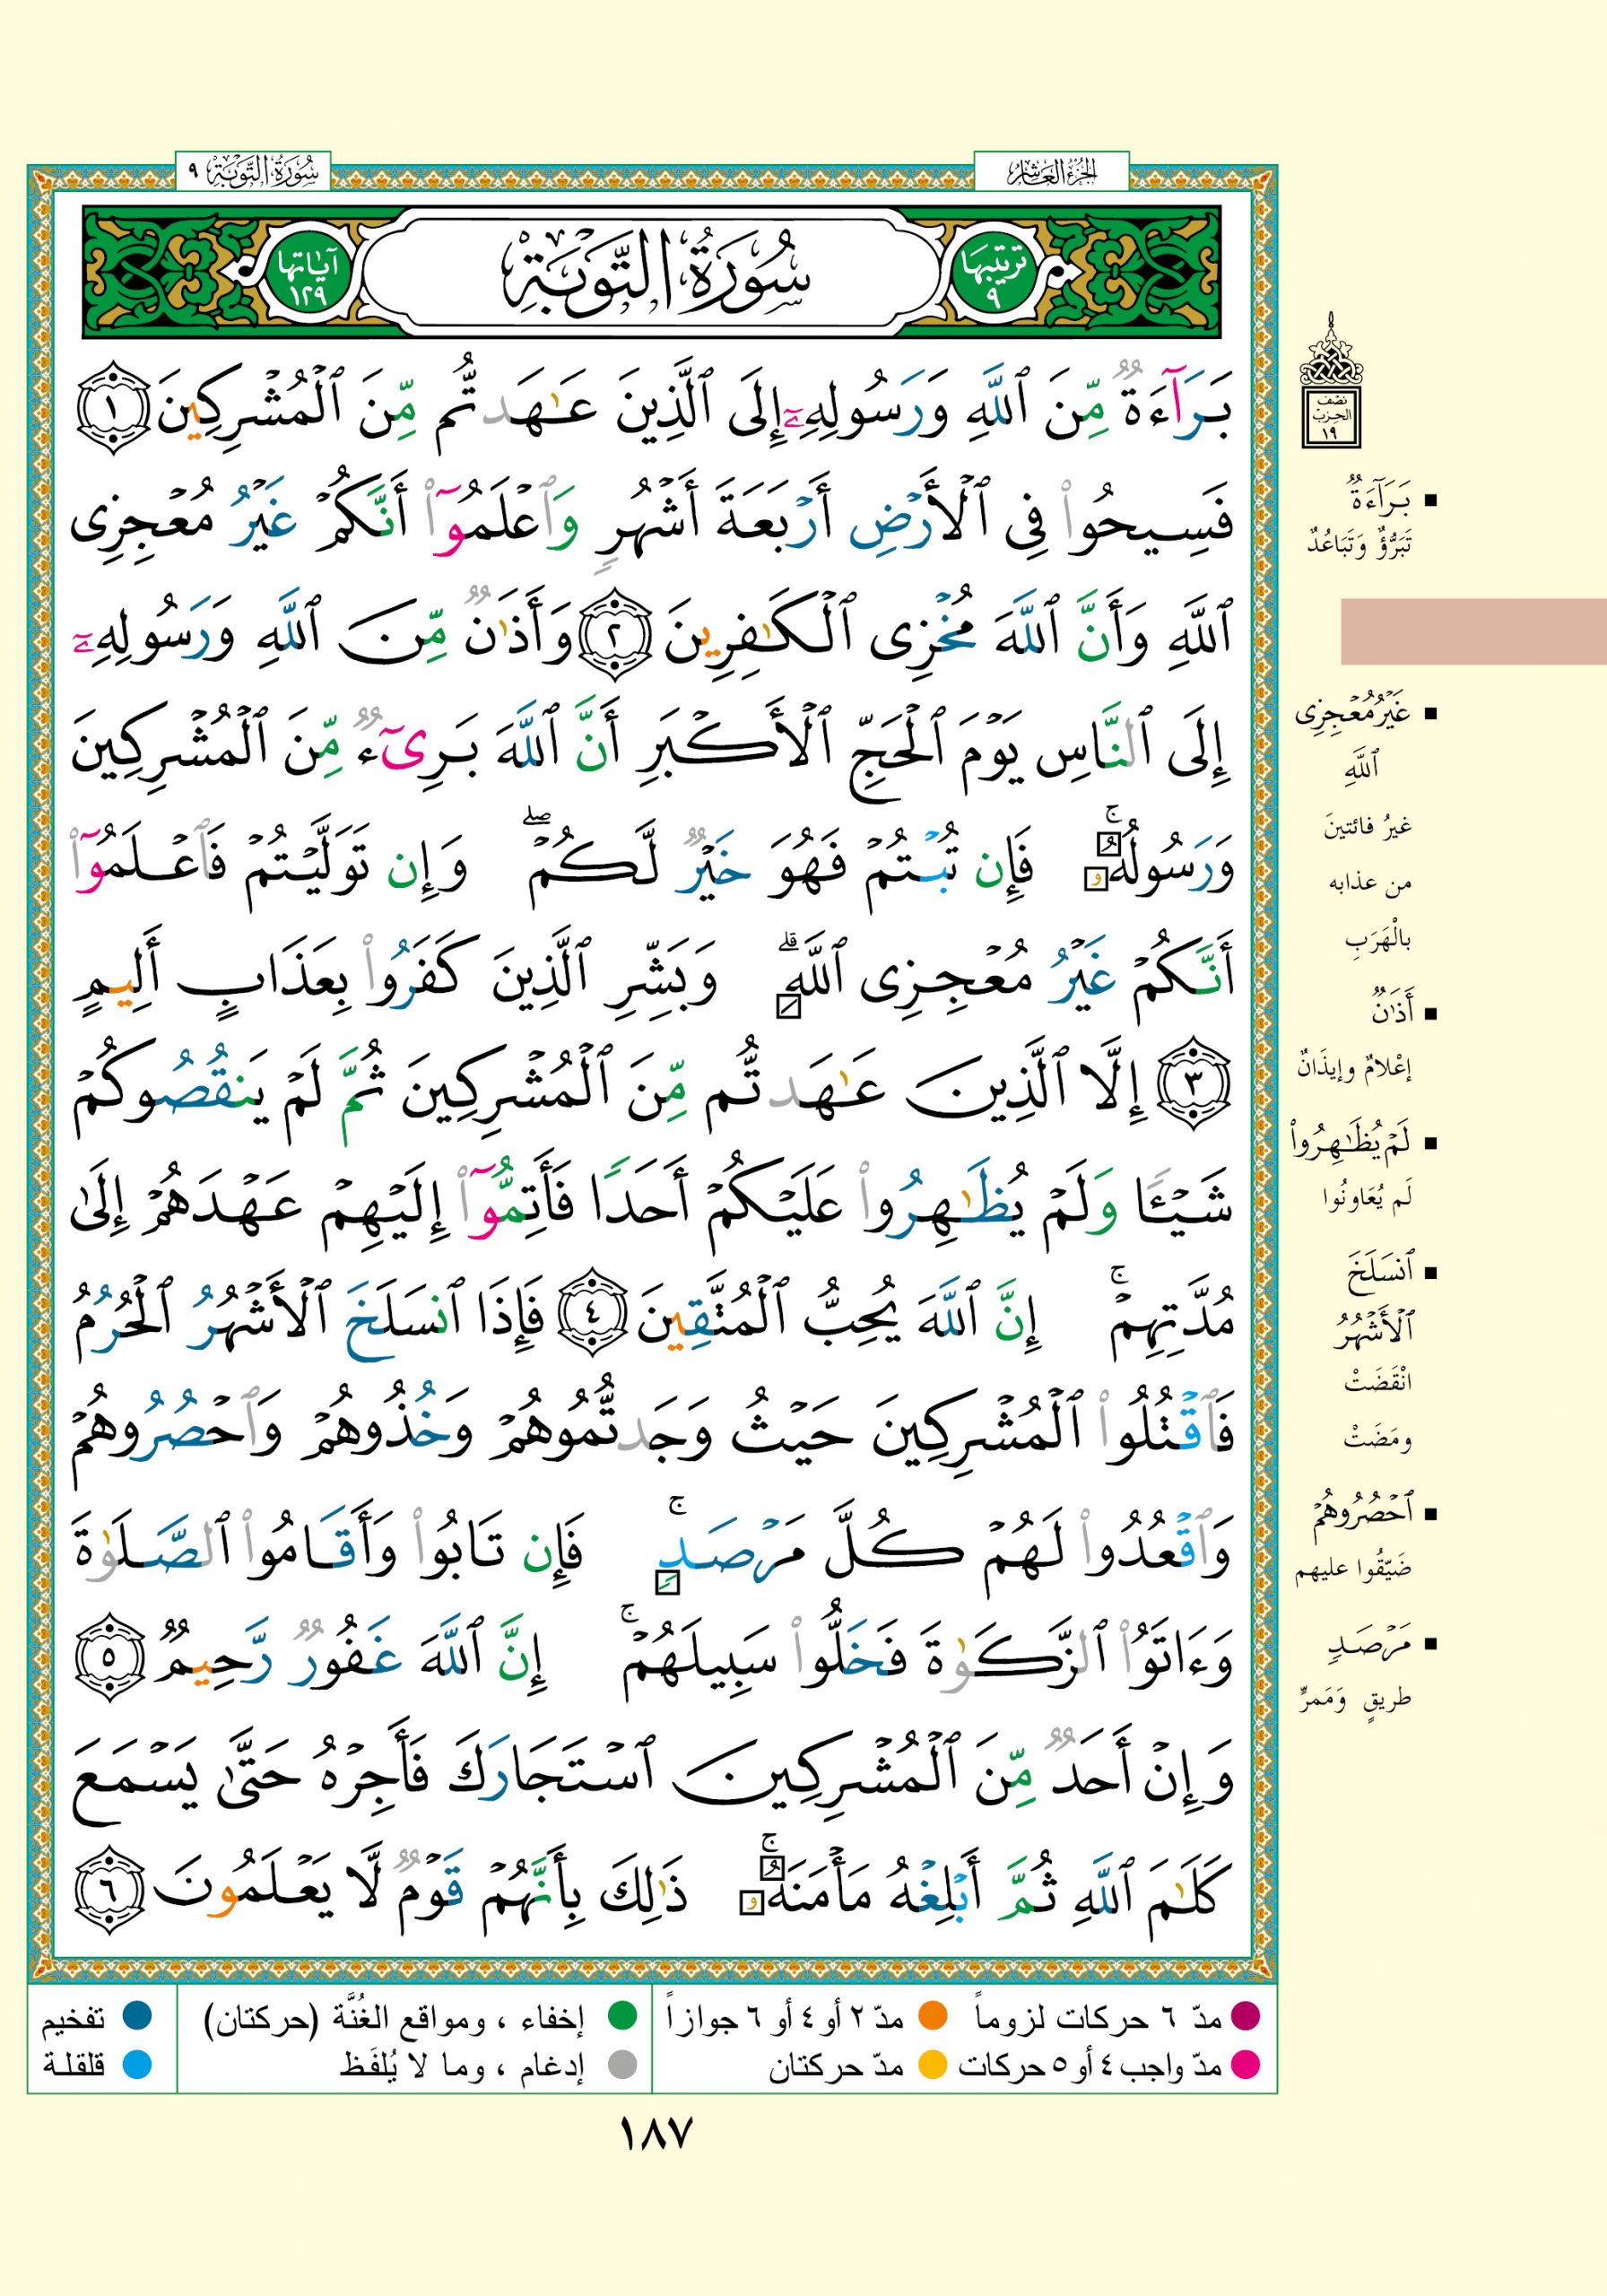 الجزء العاشر
سورة التوبة ٩
ترتيبها ٩
سُورَةُ التَّوْبَةِ
آياتها ١٢٩
بَرَآءَةٌ مِّنَ ٱللَّهِ وَرَسُولِهِۦٓ إِلَى ٱلَّذِينَ عَـٰهَدتُّم مِّنَ ٱلْمُشْرِكِينَ ١
فَسِيحُوا۟ فِى ٱلْأَرْضِ أَرْبَعَةَ أَشْهُرٍ وَٱعْلَمُوٓا۟ أَنَّكُمْ غَيْرُ مُعْجِزِى
ٱللَّهِ وَأَنَّ ٱللَّهَ مُخْزِى ٱلْكَـٰفِرِينَ ٢ وَأَذَٰنٌ مِّنَ ٱللَّهِ وَرَسُولِهِۦٓ
إِلَى ٱلنَّاسِ يَوْمَ ٱلْحَجِّ ٱلْأَكْبَرِ أَنَّ ٱللَّهَ بَرِىٓءٌ مِّنَ ٱلْمُشْرِكِينَ
وَرَسُولُهُۥ ۚ فَإِن تُبْتُمْ فَهُوَ خَيْرٌ لَّكُمْ ۖ وَإِن تَوَلَّيْتُمْ فَٱعْلَمُوٓا۟
أَنَّكُمْ غَيْرُ مُعْجِزِى ٱللَّهِ ۗ وَبَشِّرِ ٱلَّذِينَ كَفَرُوا۟ بِعَذَابٍ أَلِيمٍ
٣ إِلَّا ٱلَّذِينَ عَـٰهَدتُّم مِّنَ ٱلْمُشْرِكِينَ ثُمَّ لَمْ يَنقُصُوكُمْ
شَيْـًٔا وَلَمْ يُظَـٰهِرُوا۟ عَلَيْكُمْ أَحَدًا فَأَتِمُّوٓا۟ إِلَيْهِمْ عَهْدَهُمْ إِلَىٰ
مُدَّتِهِمْ ۚ إِنَّ ٱللَّهَ يُحِبُّ ٱلْمُتَّقِينَ ٤ فَإِذَا ٱنسَلَخَ ٱلْأَشْهُرُ ٱلْحُرُمُ
فَٱقْتُلُوا۟ ٱلْمُشْرِكِينَ حَيْثُ وَجَدتُّمُوهُمْ وَخُذُوهُمْ وَٱحْصُرُوهُمْ
وَٱقْعُدُوا۟ لَهُمْ كُلَّ مَرْصَدٍ ۚ فَإِن تَابُوا۟ وَأَقَامُوا۟ ٱلصَّلَوٰةَ
وَءَاتَوُا۟ ٱلزَّكَوٰةَ فَخَلُّوا۟ سَبِيلَهُمْ ۚ إِنَّ ٱللَّهَ غَفُورٌ رَّحِيمٌ ٥
وَإِنْ أَحَدٌ مِّنَ ٱلْمُشْرِكِينَ ٱسْتَجَارَكَ فَأَجِرْهُ حَتَّىٰ يَسْمَعَ
كَلَـٰمَ ٱللَّهِ ثُمَّ أَبْلِغْهُ مَأْمَنَهُۥ ۚ ذَٰلِكَ بِأَنَّهُمْ قَوْمٌ لَّا يَعْلَمُونَ ٦
نصف
الحزب
١٩
▪ بَرَآءَةٌ
تَبَرُّؤٌ وَتَبَاعُدٌ
▪ غَيْرُ مُعْجِزِى
ٱللَّهِ
غيرُ فائتينَ
من عذابه
بالْهَرَبِ
▪ أَذَٰنٌ
إعْلامٌ وإيذَانٌ
▪ لَمْ يُظَـٰهِرُوا۟
لَم يُعَاونُوا
▪ ٱنسَلَخَ
ٱلْأَشْهُرُ
انْقَضَتْ
ومَضَتْ
▪ ٱحْصُرُوهُمْ
ضَيِّقُوا عليهم
▪ مَرْصَدٍ
طريقٍ وَمَمرٍّ
مدّ ٦ حركات لزوماً
مدّ ٢ أو ٤ أو ٦ جوازاً
إخفاء ، ومواقع الغُنَّة (حركتان)
تفخيم
مدّ واجب ٤ أو ٥ حركات
مدّ حركتان
إدغام ، وما لا يُلفَظ
قلقلة
١٨٧